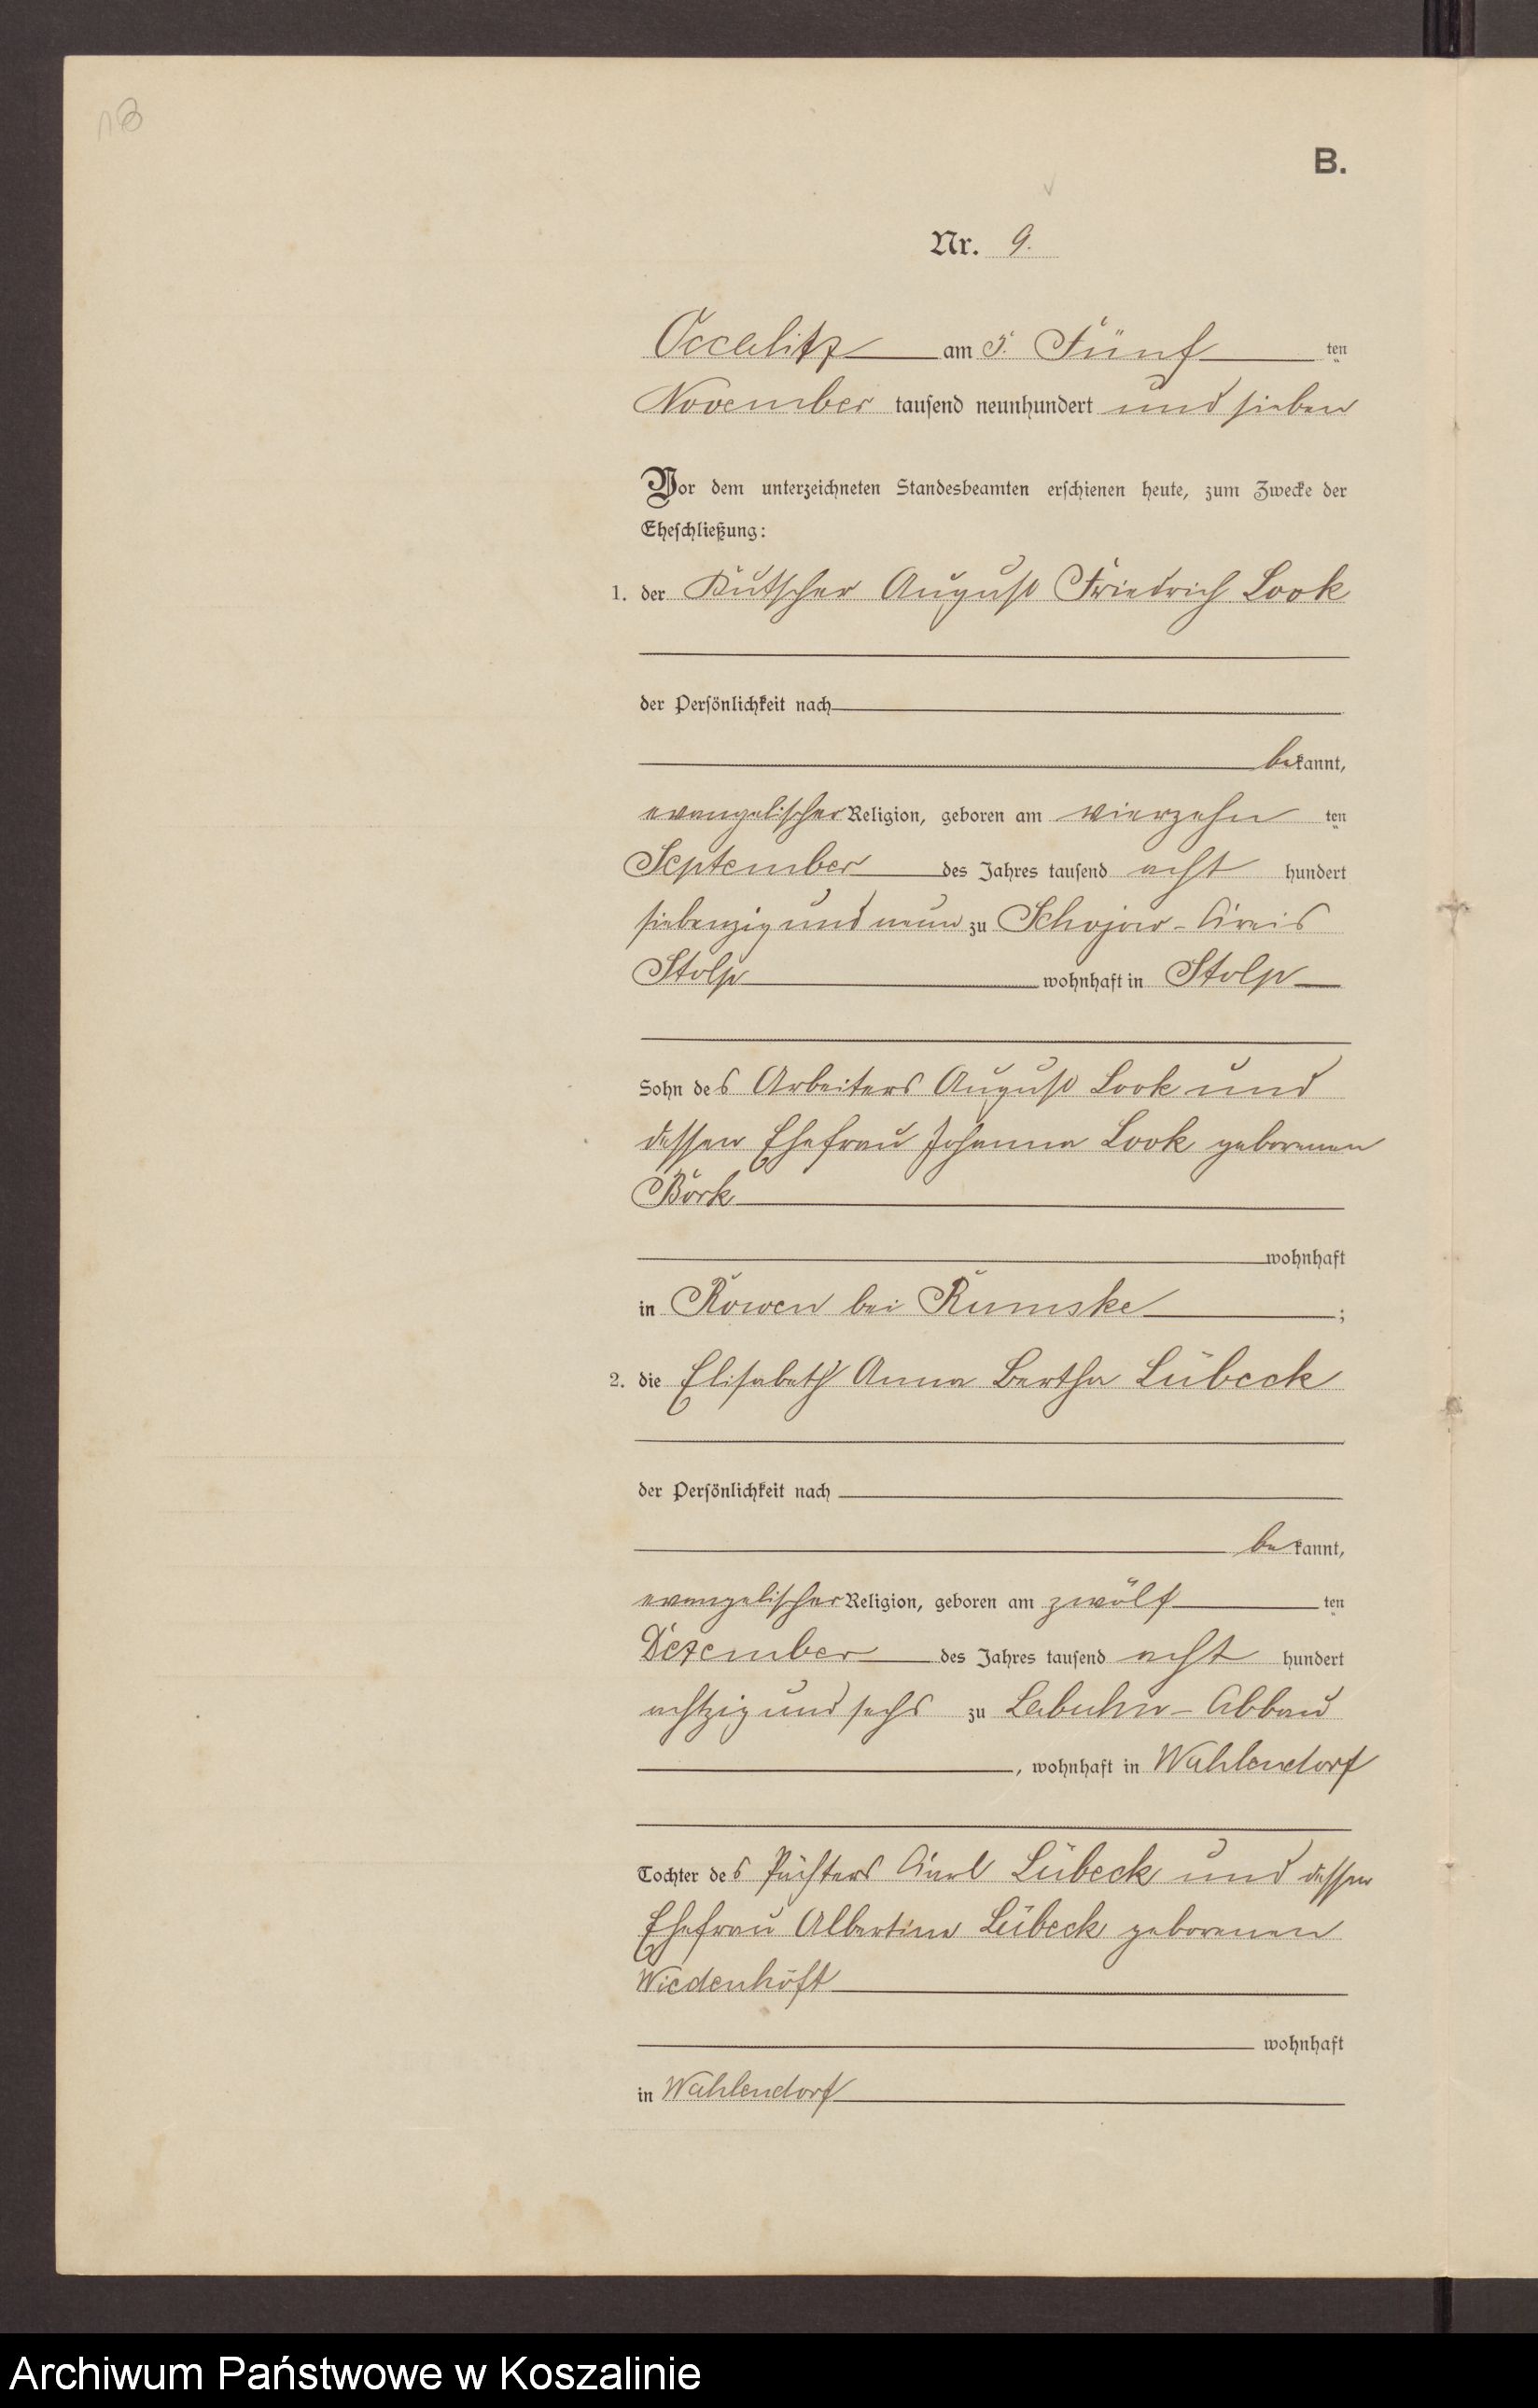 18
B.
Nr. 9.
Occalitz am 5. Fünf ten
November tausend neunhundert und sieben
Vor dem unterzeichneten Standesbeamten erschienen heute, zum Zwecke der
Eheschließung:
1. der Kutscher August Friedrich Look
der Persönlichkeit nach
bekannt,
evangelischer Religion, geboren am vierzehn ten
September des Jahres tausend acht hundert
siebenzig und neun zu Schojow - Kreis
Stolp wohnhaft in Stolp
Sohn des Arbeiters August Look und
dessen Ehefrau Johanna Look geborenen
Bork
wohnhaft
in Rowen bei Rumske ;
2. die Elisabeth Anna Bertha Lübeck
der Persönlichkeit nach
bekannt,
evangelischer Religion, geboren am zwölf ten
Dezember des Jahres tausend acht hundert
achtzig und sechs zu Labuhn - Abbau
, wohnhaft in Wahlendorf
Tochter des Pächters Karl Lübeck und dessen
Ehefrau Albertine Lübeck geborenen
Wiedenhöft
wohnhaft
in Wahlendorf
Archiwum Państwowe w Koszalinie